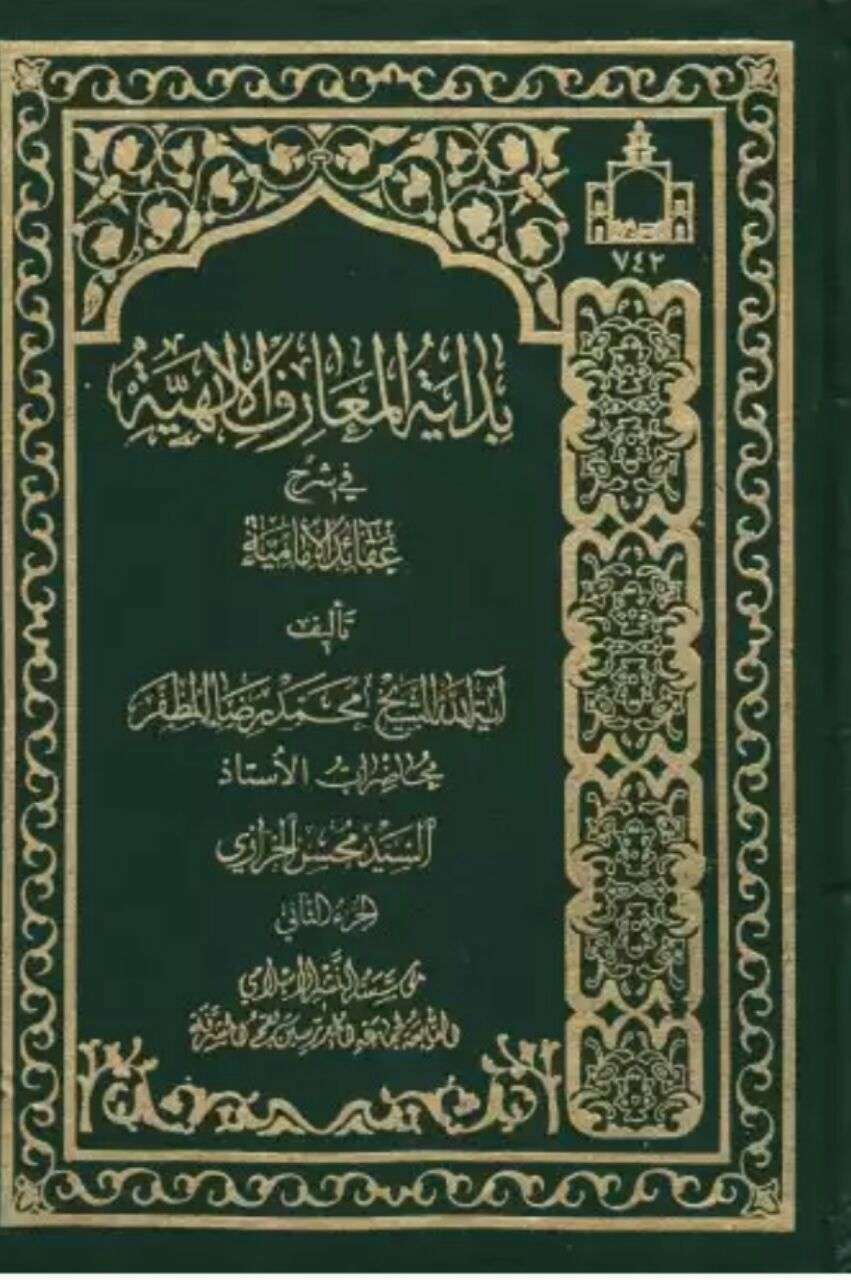 ٧٤٢
بِدَايَةُ المَعَارِفِ الإِلٰهِيَّةِ
في شرح
عقائد الإمامية
تأليف
آية الله الشيخ محمد رضا المظفر
محاضرات الأستاذ
السيد محسن الخرازي
الجزء الثاني
مؤسسة النشر الإسلامي
التابعة لجماعة المدرسين بقم المشرفة